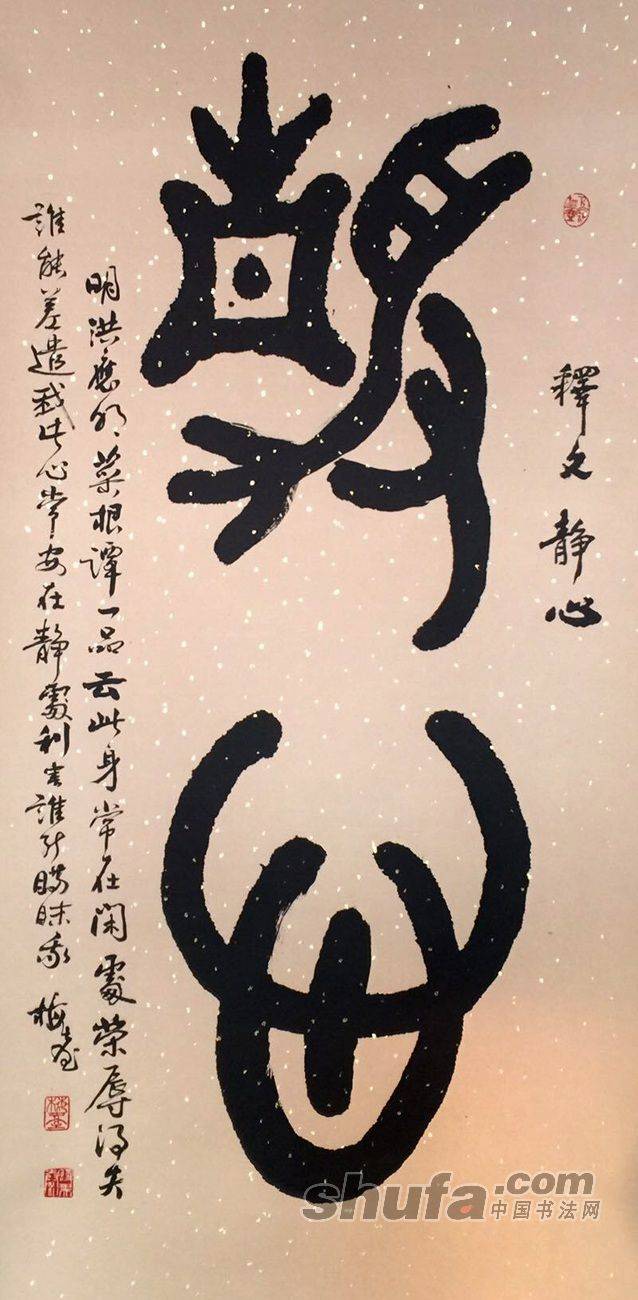 釋文 靜心
靜心
明洪應明菜根譚一品云此身常在閑處榮辱得失
誰能差遣我此心常安在靜處利害誰能瞞昧我 梅
shufa.com
中国书法网